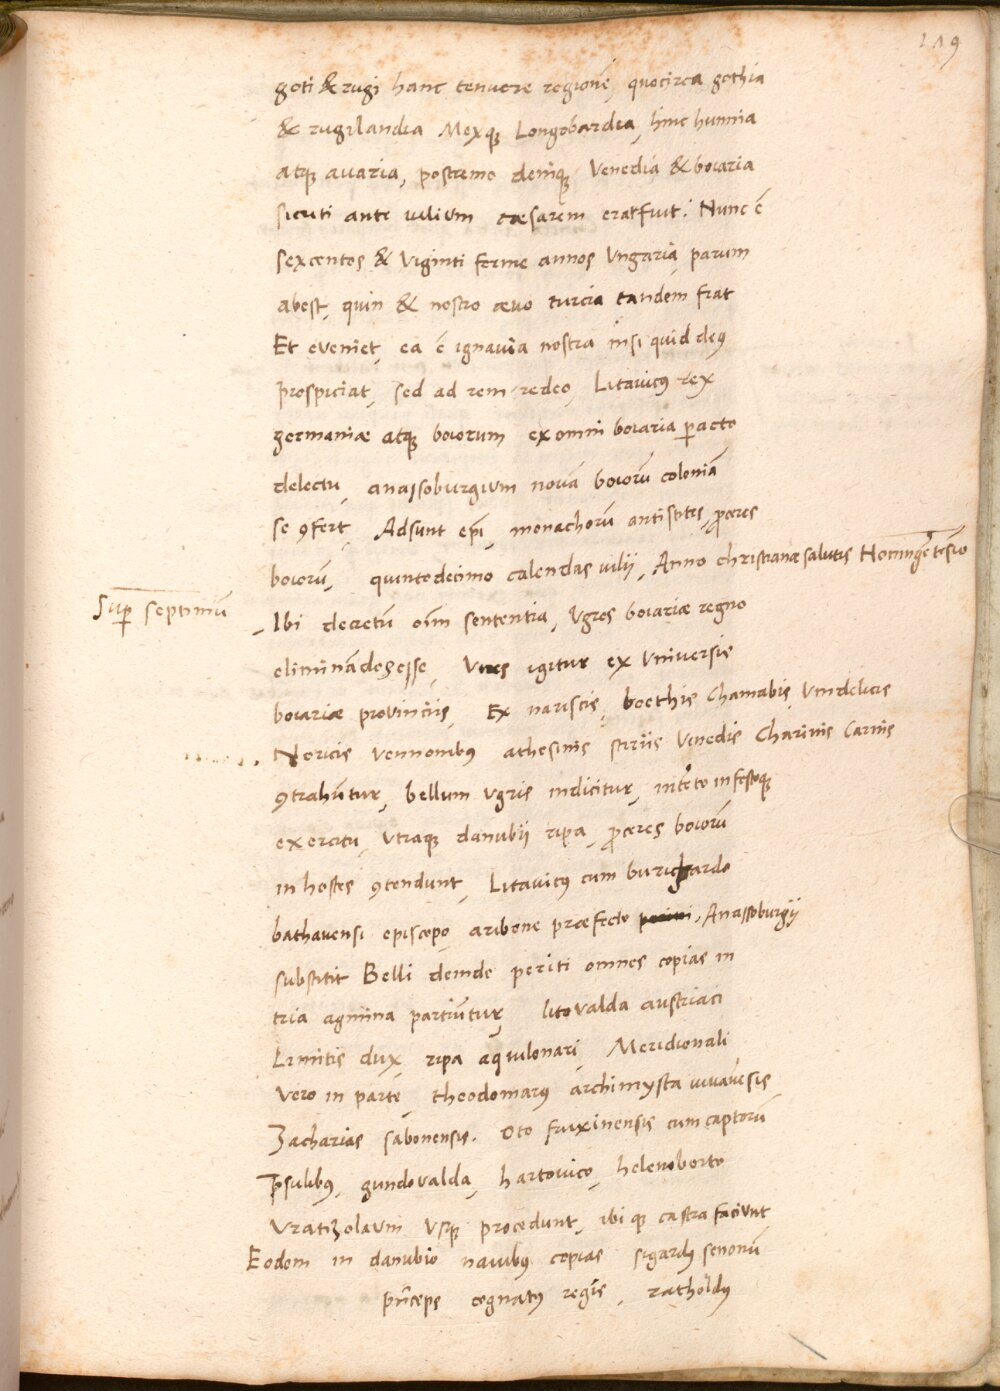 119
goti & rugi hanc tenuere regionē, quocirca gothia
& rugilandia Mexq; Longobardia, hinc hunnia
atq; avaria, postremo deniq; Venedia & boiaria
sicuti ante iulium cæsarem erat fuit. Nunc ē
sexcentos & viginti ferme annos Vngaria, parum
abest, quin & nostro ævo turcia tandem fiat
Et eveniet, ea ē ignavia nostra nisi quid deꝰ
prospiciat, sed ad rem redeo, Litavicꝰ rex
germaniæ atq; boiorum ex omni boiaria ꝑacto
delectu, anassoburgium novā boiorū coloniā
se ꝯfert, Adsunt ep̄i, monachorū antistites, ꝓceres
boiorū, quintodecimo calendas iulij, Anno christianæ salutis Noningētesīo
Suꝑ septimū
Ibi decretū oīm sententia, Vgros boiariæ regno
eliminādos esse, Vires igitur ex Vniversis
boiariæ provinciis, Ex nariscis, boethis Chamabis, Vindelicis
Noricis vennonibꝰ athesinis stiriis Venedis Charinis Carnis
ꝯtrahūtur, bellum Vgris indicitur, intēto infestoq;
exercitu, Vtraq; danubij ripa, ꝓceres boiorū
in hostes ꝯtendunt, Litavicꝰ cum burichardo
bathavensi episcopo, aribone præfecto, Anassoburgij
substitit Belli deinde periti omnes copias in
tria agmina partiūtur, litovalda austriaci
Limitis dux, ripa aquilonari, Meridionali
vero in parte, theodomarꝰ archimysta iuvavēsis
Zacharias sabonensis. Oto fruxinensis cum captorū
p̄sulibꝰ, gundovalda, hartovico, helenoberto
Vratizolaum Vsq; procedunt, ibi q; castra faciunt
Eodem in danubio navibꝰ copias sigardꝰ senonū
prīceps cognatꝰ regis, ratholdꝰ